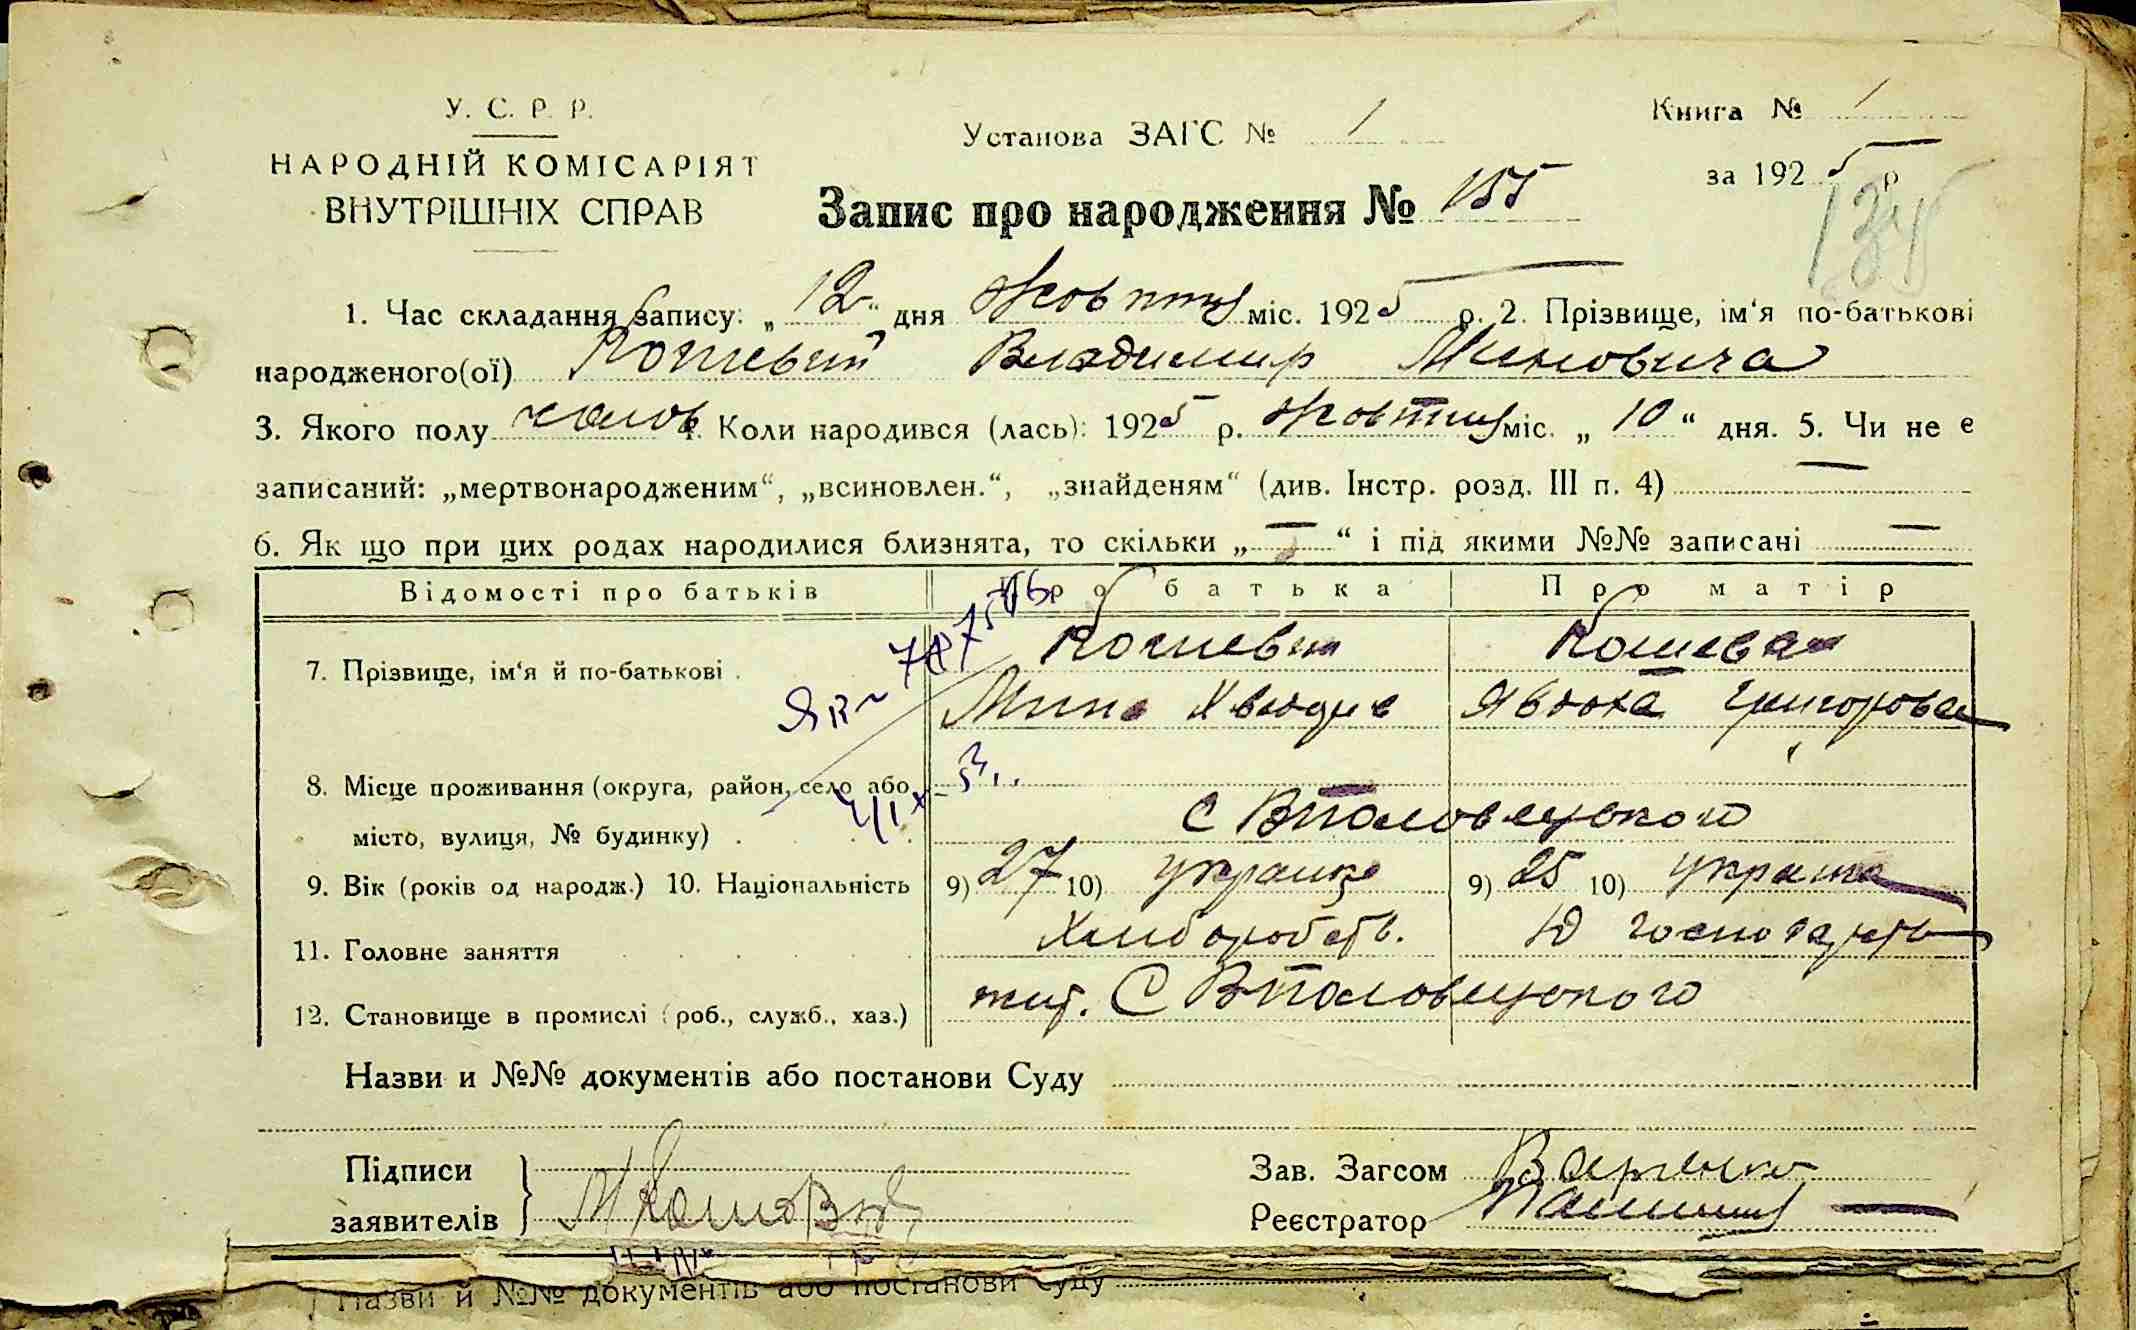 У. С. Р. Р.
НАРОДНІЙ КОМІСАРІЯТ
ВНУТРІШНІХ СПРАВ
Установа ЗАГС № 1
Книга № 1
за 1925 р
Запис про народження № 155
1. Час складання запису: „12“ дня Жовтня міс. 1925 р. 2. Прізвище, ім‘я по-батькові
народженого(ої) Кошевий Владимир Минович а
3. Якого полу чолов 4. Коли народився (лась): 1925 р. Жовтня міс. „10“ дня. 5. Чи не є
записаний: „мертвонародженим“, „всиновлен.“, „знайденям“ (див. Інстр. розд. III п. 4) —
6. Як що при цих родах народилися близнята, то скільки „—“ і під якими №№ записані —
Відомості про батьків Про батька Про матір
7. Прізвище, ім‘я й по-батькові Кошевий Кошевая
Мина Явдоха Григоровна
8. Місце проживання (округа, район, село або
місто, вулиця, № будинку) С Вполовецького
9. Вік (років од народж.) 10. Національність 9) 27 10) украінц 9) 25 10) украінка
11. Головне заняття Хліборобств.
12. Становище в промислі (роб., служб., хаз.) жит. С Вполовецького
Назви и №№ документів або постанови Суду
Підписи
заявителів
Зав. Загсом
Реєстратор
Назви й №№ документів або постанови Суду